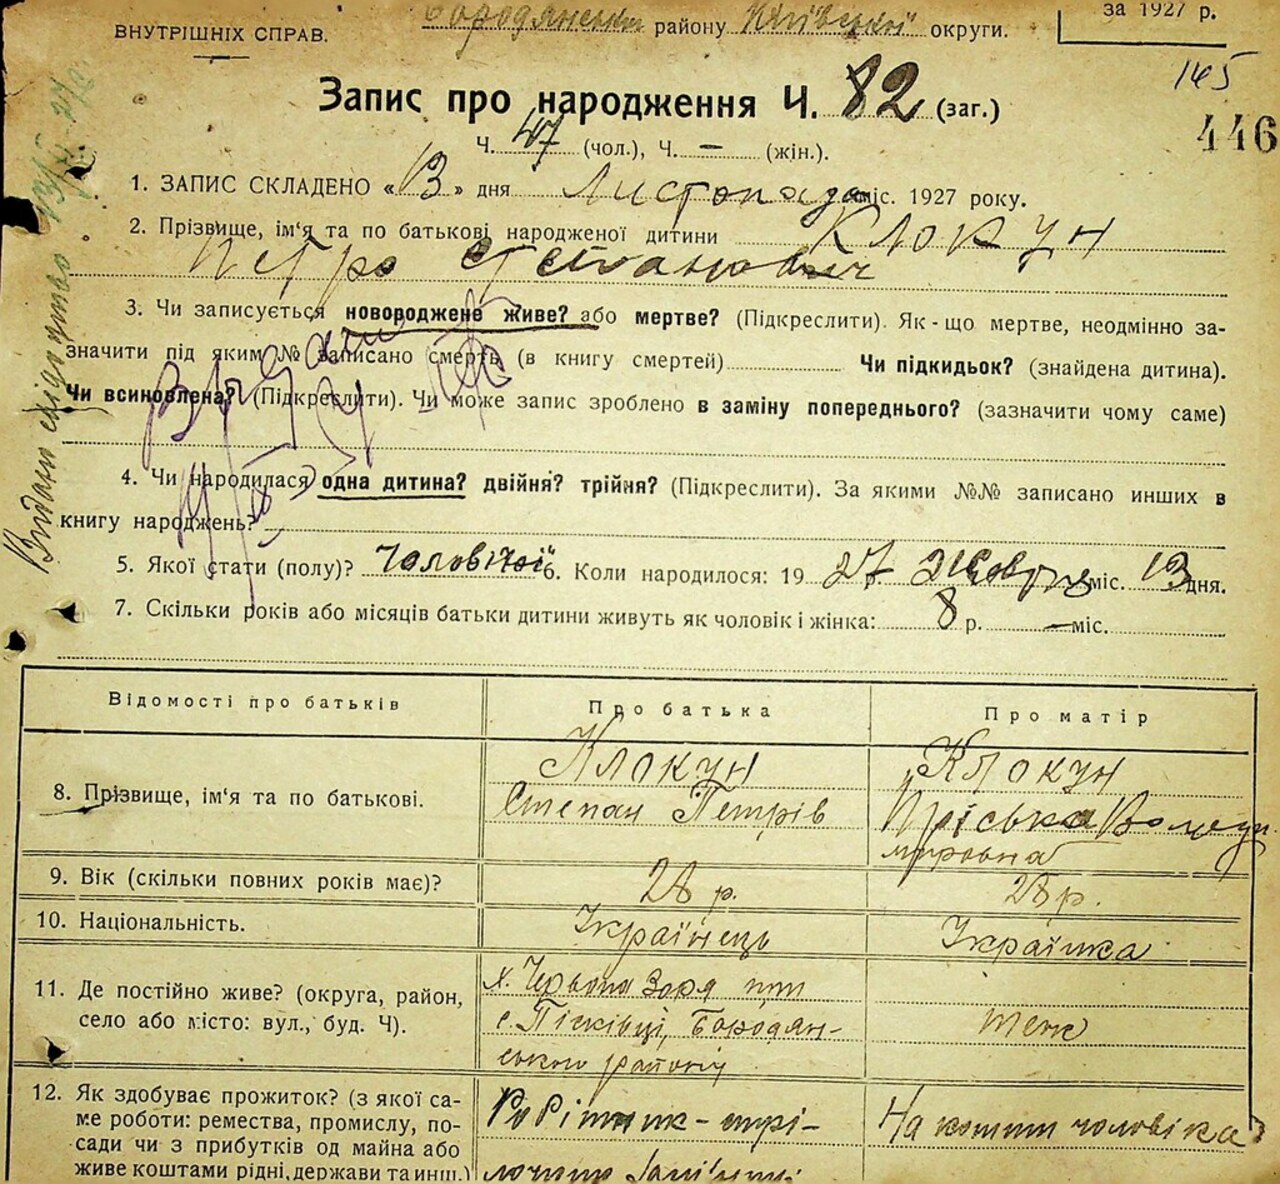 за 1927 р.
ВНУТРІШНІХ СПРАВ.
Бородянськ району Київської округи.
145
446
Запис про народження Ч. 82 (заг.)
Ч. 47 (чол.), Ч. — (жін.).
1. ЗАПИС СКЛАДЕНО «13» дня Листопада міс. 1927 року.
2. Прізвище, ім'я та по батькові народженої дитини Клокун
Петро Степанович
3. Чи записується новороджене живе? або мертве? (Підкреслити). Як-що мертве, неодмінно за-
значити під яким № записано смерть (в книгу смертей) Чи підкидьок? (знайдена дитина).
Чи всиновлена? (Підкреслити). Чи може запис зроблено в заміну попереднього? (зазначити чому саме)
4. Чи народилася одна дитина? двійня? трійня? (Підкреслити). За якими №№ записано инших в
книгу народжень?
5. Якої стати (полу)? Чоловічої 6. Коли народилося: 1927 Жовтня міс. 13 дня.
7. Скільки років або місяців батьки дитини живуть як чоловік і жінка: 8 р. — міс.
Видано
Відомості про батьків
Про батька
Про матір
8. Прізвище, ім'я та по батькові.
Клокун
Степан Петрів
Клокун
Пріська Володи-
мировна
9. Вік (скільки повних років має)?
28 р.
28 р.
10. Національність.
Українець
Українка
11. Де постійно живе? (округа, район,
село або місто: вул., буд. Ч).
х. Червона Зоря при
с. Пісківці, Бородян-
ського району
теж
12. Як здобуває прожиток? (з якої са-
ме роботи: ремества, промислу, по-
сади чи з прибутків од майна або
живе коштами рідні, держави та инш.)
Робітник - стрі-
лочник
На кошти чоловіка